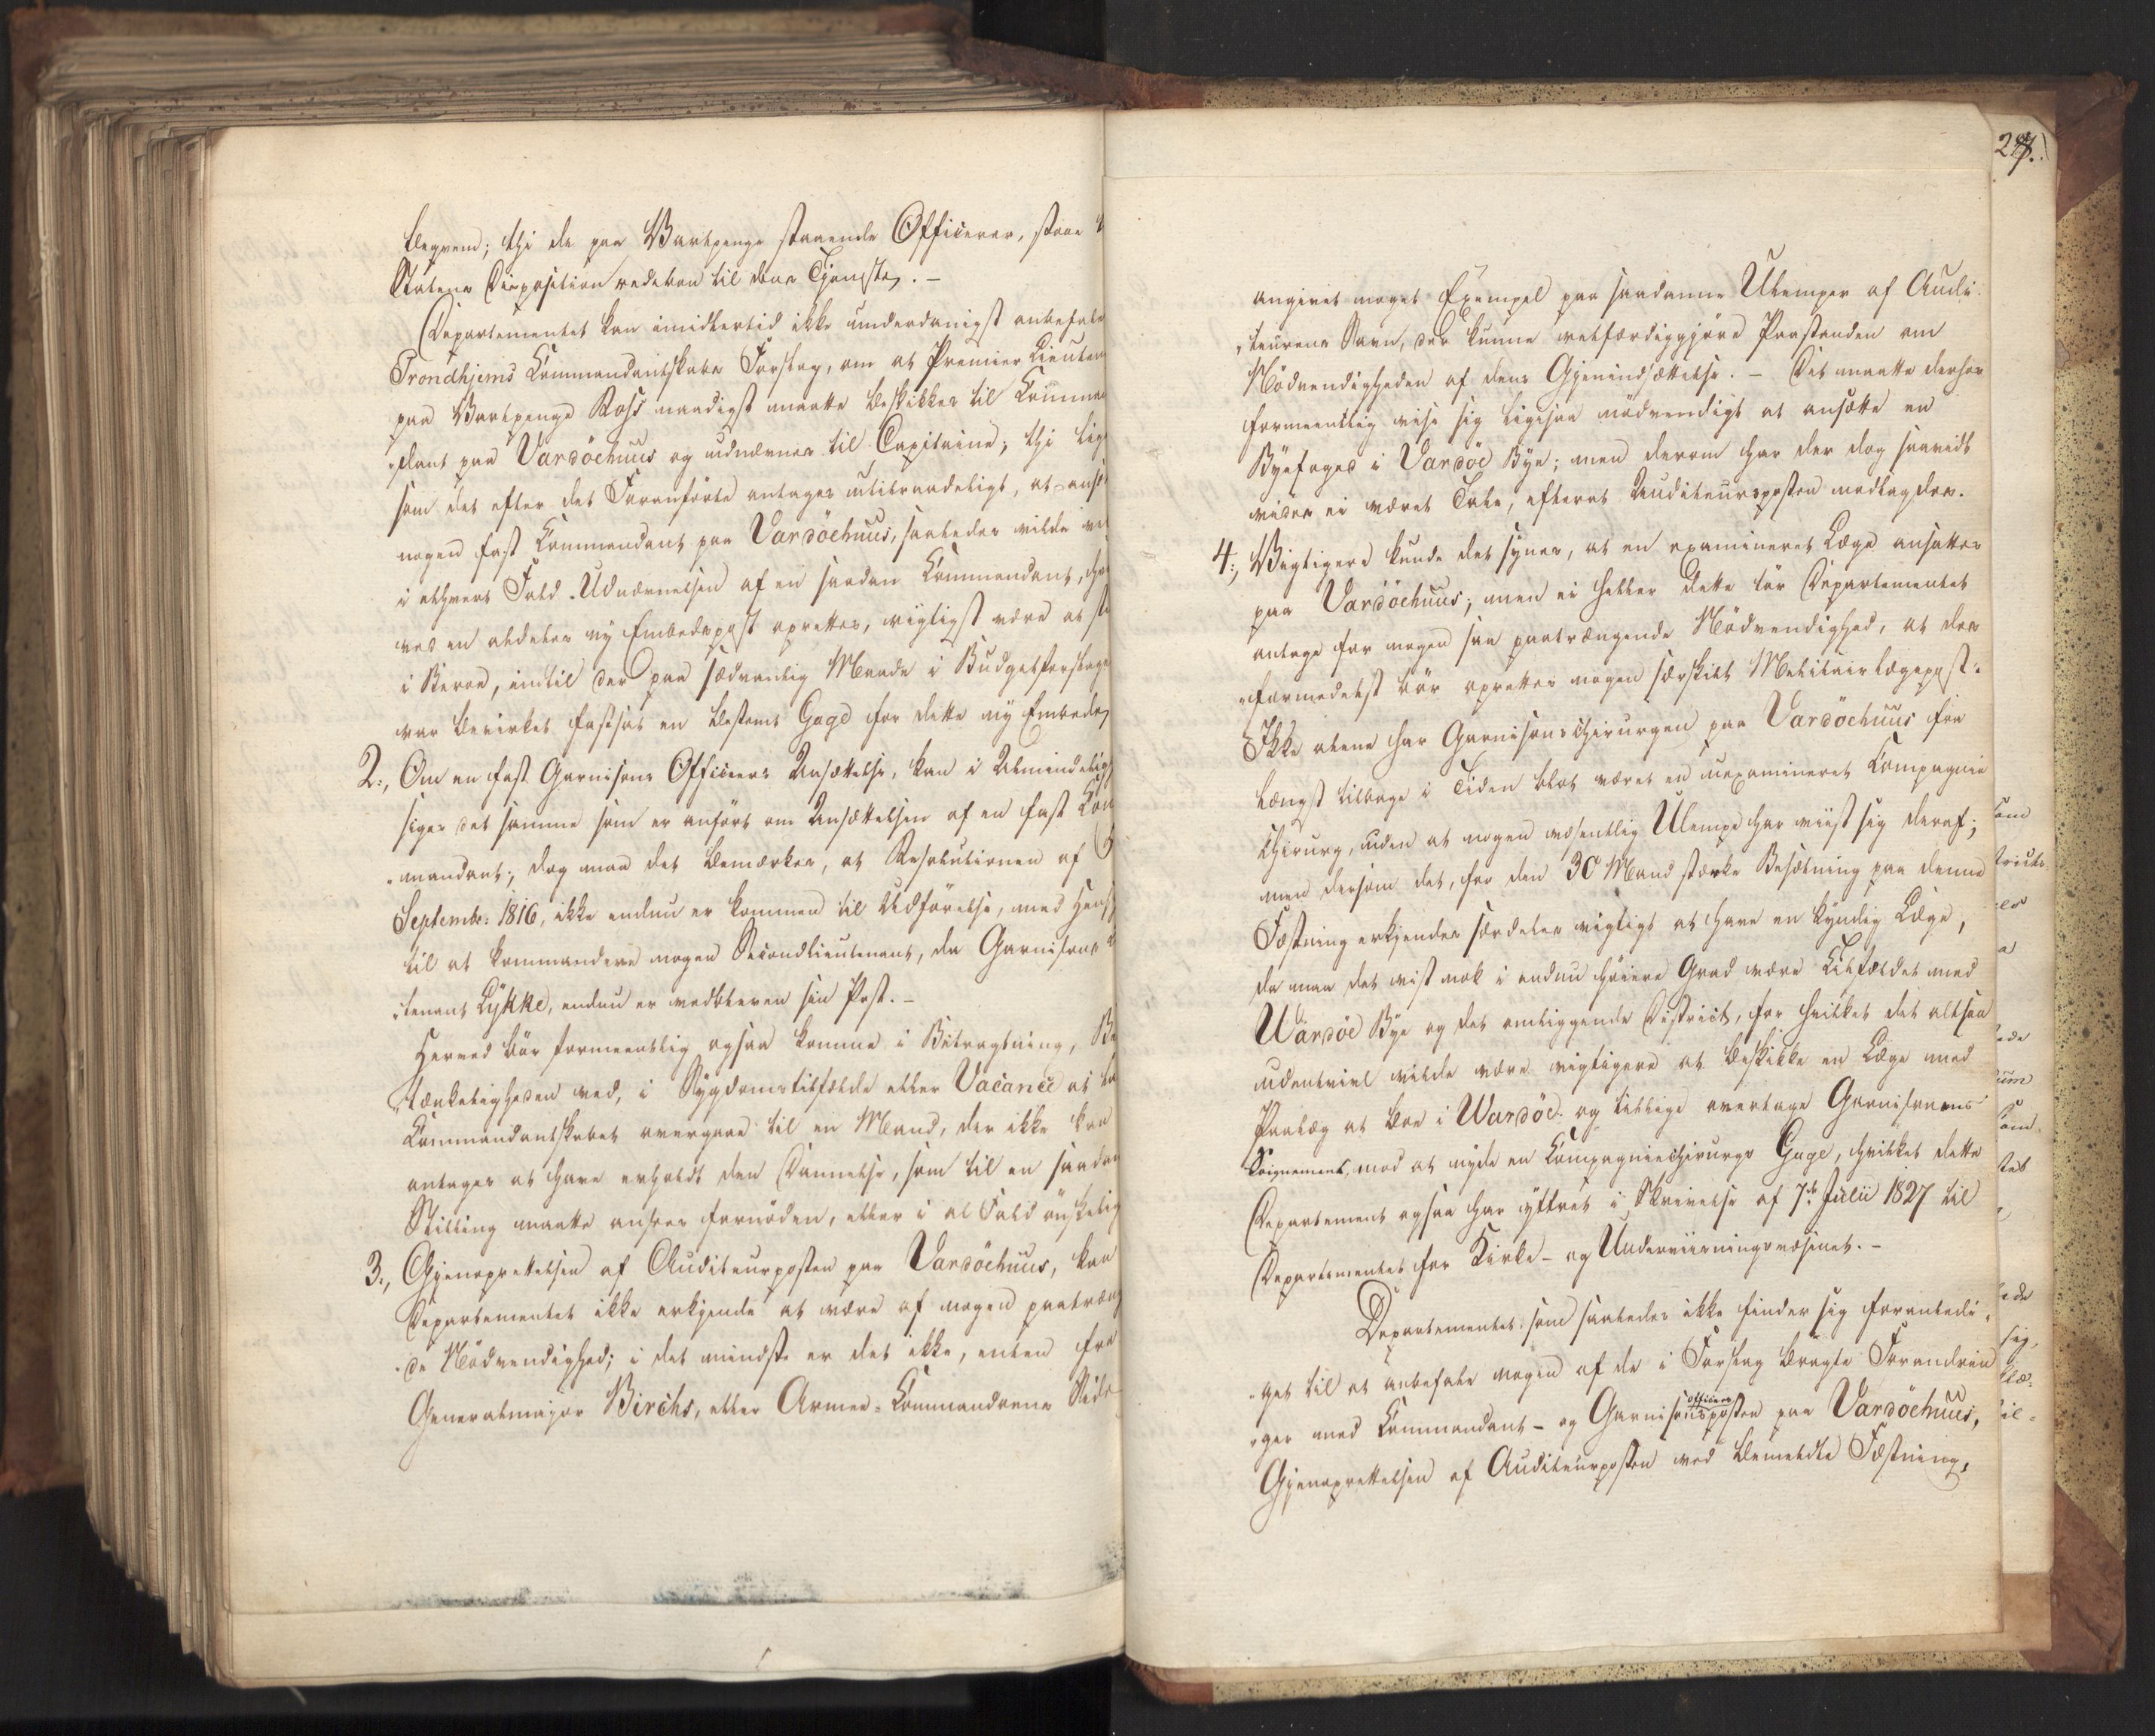 beqvem; thi de paa Vartpenge staaende Officerer, staae
Statens Disposition rede til dens Tjeneste. –
Departementet kan imidlertid ikke underdanigst anbefale
Trondhjems Commandantskabs Forslag, om at Premier Lieuten
paa Vartpenge Ross naadigst maatte beskikkes til Comman
„dant paa Vardöehuus og udnævnes til Capitaine; thi lige
som det efter det Foranførte antages utilraadeligt, at ansæt
nogen fast Commandant paa Vardöehuus, saaledes vilde
i ethvert Fald Udnævnelsen af en saadan Commandant,
ved en aldeles ny Embedspost oprettes, rigtigst være at
i Beroe, indtil der paa sædvanlig Maade i Budgetforslage
var bevirket fastsat en bestemt Gage for dette ny Embede
2., Om en fast Garnisons Officeers Ansættelse, kan i Almindelig
siges det samme som er anført om Ansættelsen af en fast Com
„mandant; dog maa det bemærkes, at Resolutionen af
Septembr: 1816, ikke endnu er kommen til Udførelse, med Hens
til at kommandere nogen Secondlieutenant, da Garnisons
„tenant Lykke, endnu er vedbleven sin Post. –
Herved bør formeentlig ogsaa komme i Betragtning, Be
„tænkeligheden ved, i Sygdomstilfælde eller Vacance at
Commandantskabet overgaae til en Mand, der ikke kan
antages at have erholdt den Dannelse, som til en saadan
Stilling maatte ansees fornøden, eller i al Fald ønskelig
3., Gjenoprettelsen af Auditeurposten paa Vardöehuus, kan
Departementet ikke erkjende at være af nogen paatræng
„de Nödvendighed; i det mindste er det ikke, enten fra
Generalmajor Birchs, eller Armee-Commandoens Side
angivet noget Exempel paa saadanne Ulemper af Audi
„teurens Savn, der kunne retfærdiggjøre Paastanden om
Nödvendigheden af dens Gjenindsættelse. – Det maatte derhos
formeentlig vise sig ligesaa nødvendigt at ansætte en
Byefoged i Vardöe Bye; men derom har der dog saavidt
vides ei været Tale, efterat Auditeursposten nedlagdes.
4., Vigtigere kunde det synes, at en examineret Læge ansattes
paa Vardöehuus; men ei heller dette tør Departementet
antage for nogen saa paatrængende Nödvendighed, at der
„formedelst bør oprettes nogen særskilt Militairlægepost.
Ikke alene har Garnisonschirurgen paa Vardöehuus fra
længst tilbage i Tiden blot været en uexamineret Compagnie
Chirurg, uden at nogen væsentlig Ulempe har viist sig deraf;
men dersom det, for den 30 Mand stærke Besætning paa denne
Fæstning erkjendes særdeles vigtigt at have en kyndig Læge,
da maa det vist nok i endnu høiere Grad være Tilfældet med
Wardöe Bye og det omliggende District, for hvilket det altsaa
udentvivl vilde være vigtigere at beskikke en Læge med
Paalæg at boe i Wardöe og tillige overtage Garnisonens
Soignement, mod at nyde en Compagniechirurgs Gage, hvilket dette
Departement ogsaa har yttret i Skrivelse af 7de Julii 1827 til
Departementet for Kirke- og Underviisningsvæsenet. –
Departementet som saaledes ikke finder sig foranledi
„get til at anbefale nogen af de i Forslag bragte Forandrin
„ger med Commandant- og Garnisons officeersposten paa Vardöehuus,
Gjenoprettelsen af Auditeurposten ved bemeldte Fæstning,